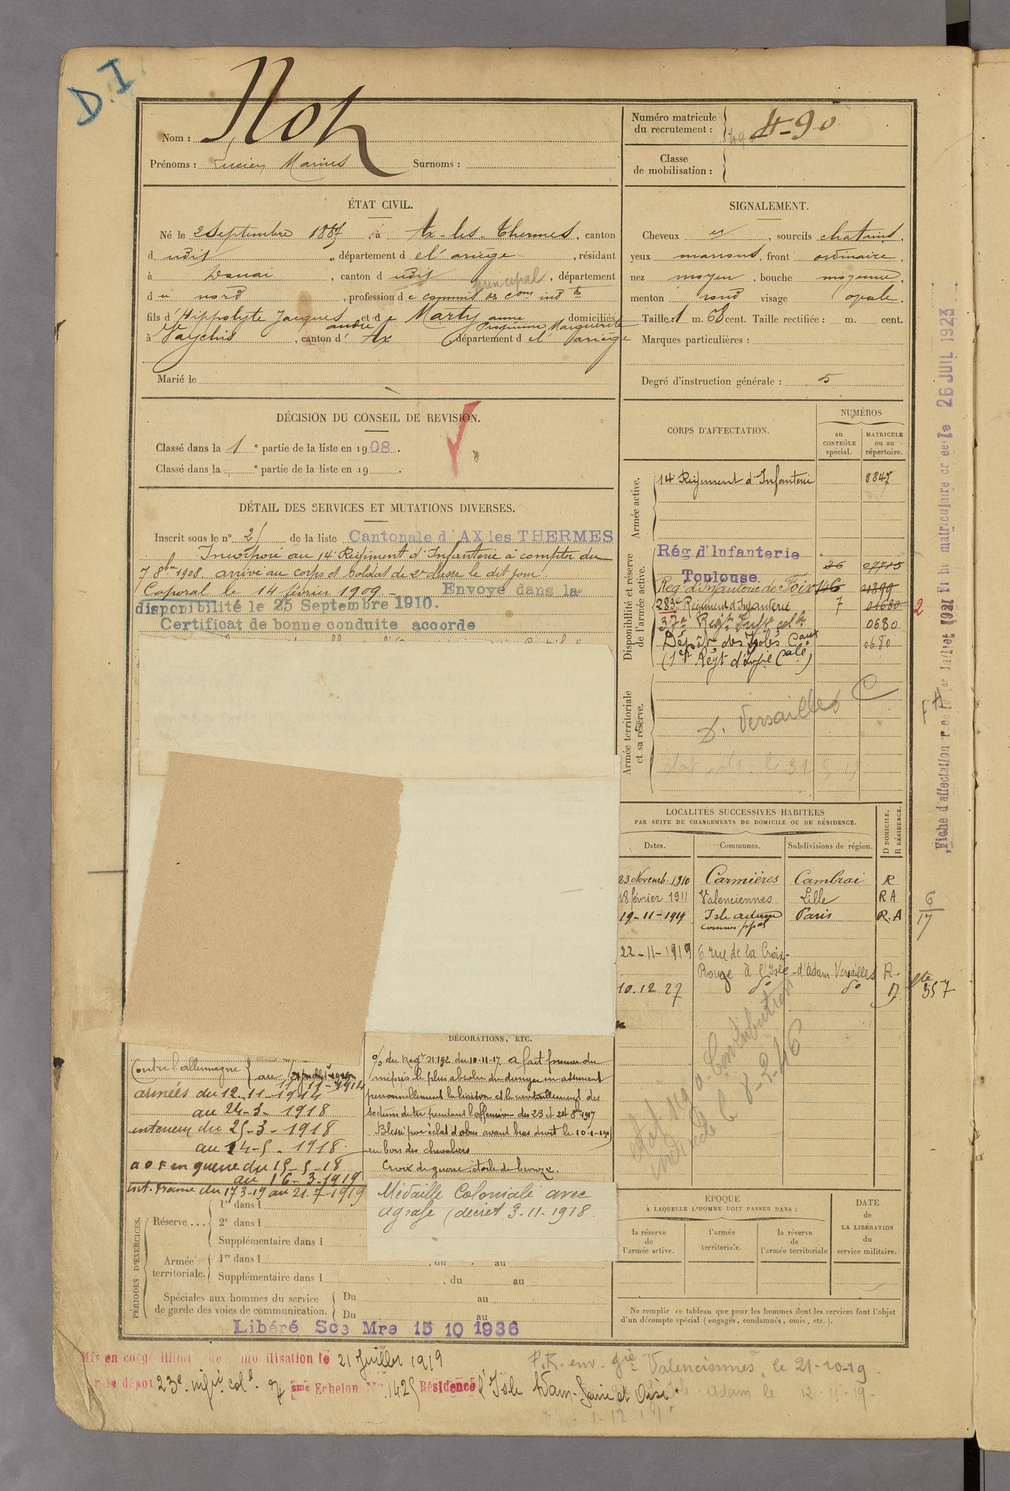 D.I
Nom : Noh
Prénoms : Lucien Marius Surnoms :
Numéro matricule
du recrutement : 490
Classe
de mobilisation :
ÉTAT CIVIL.
Né le 2 Septembre 1887 à Ax-les-Thermes, canton
d udit, département d e l'ariège, résidant
à Douai, canton d udit, département
principal
d u nord, profession d e commis es Cons indtes
fils d'Hippolyte Jacques et d e Marty anne domiciliés
andré Marguerite
à Vaychis, canton d' Ax département d e l' ariège
Marié le
SIGNALEMENT.
Cheveux et, sourcils chatains,
yeux marrons, front ordinaire,
nez moyen, bouche moyenne,
menton rond visage ovale.
Taille : 1 m. 68 cent. Taille rectifiée : m. cent.
Marques particulières :
Degré d'instruction générale : 5
DÉCISION DU CONSEIL DE REVISION.
Classé dans la 1e partie de la liste en 1908.
Classé dans la e partie de la liste en 19
DÉTAIL DES SERVICES ET MUTATIONS DIVERSES.
Inscrit sous le n° 21 de la liste Cantonale d'AX les THERMES
Incorporé au 14 Régiment d'Infanterie à compter du
7 8bre 1908. arrivé au corps et soldat de 2e classe le dit jour.
Caporal le 14 février 1909 - Envoyé dans la
disponibilité le 25 Septembre 1910.
Certificat de bonne conduite accordé
CORPS D'AFFECTATION.
NUMÉROS
au
CONTRÔLE
spécial.
MATRICULE
ou au
répertoire.
Armée active.
14 Régiment d'Infanterie 8847
Disponibilité et réserve
de l'armée active.
Rég d'Infanterie
Toulouse 26 07715
Rég. d'Infanterie de Foix 146 01899
283e Régiment d'Infanterie 7 01680 2
37e Régt Inftie colle 0680
Dépôt des Isolés Caux 0680
(1er Régt d'Infie Cale)
Armée territoriale
et sa réserve.
D. Versailles C
LOCALITÉS SUCCESSIVES HABITÉES
PAR SUITE DE CHANGEMENTS DE DOMICILE OU DE RÉSIDENCE.
Dates. Communes. Subdivisions de région. D DOMICILE. R RÉSIDENCE.
23 Novemb. 1910 Carnières Cambrai R
18 février 1911 Valenciennes Lille R A
19-11-1919 Isle adam Paris R.A
22-11-1919 6 rue de la Croix-
Rouge à l'Isle-d'Adam Versailles R.
10.12 27 do do D
557
6
17
Fiche d'affectation
26 JUIL 1923
8-2-46
DÉCORATIONS, ETC.
Contre l'allemagne au 11-11-1914
armées du 12-11-1914
au 24-3-1918
intérieur du 25-3-1918
au 14-5-1918
A.O.F en guerre du 15-5-18
au 16-3-1919
int. France du 17 3-19 au 21-7-1919
o/o du Régt N 192 du 10-11-17 a fait preuve du
mépris le plus absolu du danger en assurant
personnellement la liaison et le ravitaillement des
sections de tir pendant l'offensive des 23 et 24 8bre 1917
Blessé par éclat d'obus avant bras droit le 10-1-1915
au bois des chevaliers
Croix de guerre étoile de bronze.
Médaille Coloniale avec
agrafe (décret 3-11-1918.
PÉRIODES D'EXERCICES.
Réserve....
1re dans l
2e dans l
Supplémentaire dans l
Armée
territoriale.
1re dans l , du au
Supplémentaire dans l , du au
Spéciales aux hommes du service
de garde des voies de communication.
Du au
Du au
Libéré Sce Mre 15 10 1936
ÉPOQUE
À LAQUELLE L'HOMME DOIT PASSER DANS :
la réserve
de
l'armée active.
l'armée
territoriale.
la réserve
de
l'armée territoriale
DATE
de
LA LIBÉRATION
du
service militaire.
Ne remplir ce tableau que pour les hommes dont les services font l'objet
d'un décompte spécial (engagés, condamnés, omis, etc.).
Mis en congé illimité de démobilisation le 21 Juillet 1919
par le dépôt 23e infie cole 7 ème Echelon No 1425 Résidence l'Isle Adam-Seine et Oise
P.R. env. gie Valenciennes, le 21-10-19
Adam le 12-11-19-